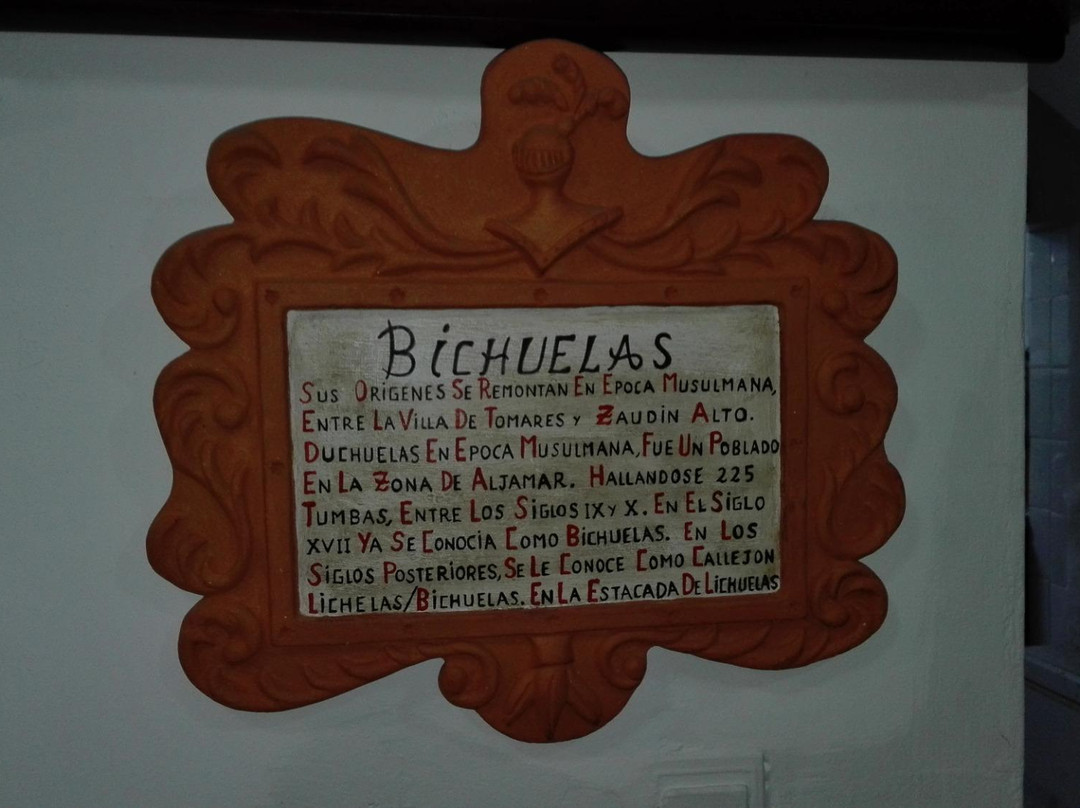 BiCHUELAS
SUS ORÍGENES SE REMONTAN EN EPOCA MUSULMANA,
ENTRE LA VILLA DE TOMARES Y ZAUDÍN ALTO.
DUCHUELAS EN EPOCA MUSULMANA, FUE UN POBLADO
EN LA ZONA DE ALJAMAR. HALLANDOSE 225
TUMBAS, ENTRE LOS SIGLOS IX Y X. EN EL SIGLO
XVII YA SE CONOCÍA COMO BICHUELAS. EN LOS
SIGLOS POSTERIORES, SE LE CONOCE COMO CALLEJON
LICHELAS/BICHUELAS. EN LA ESTACADA DE LICHUELAS